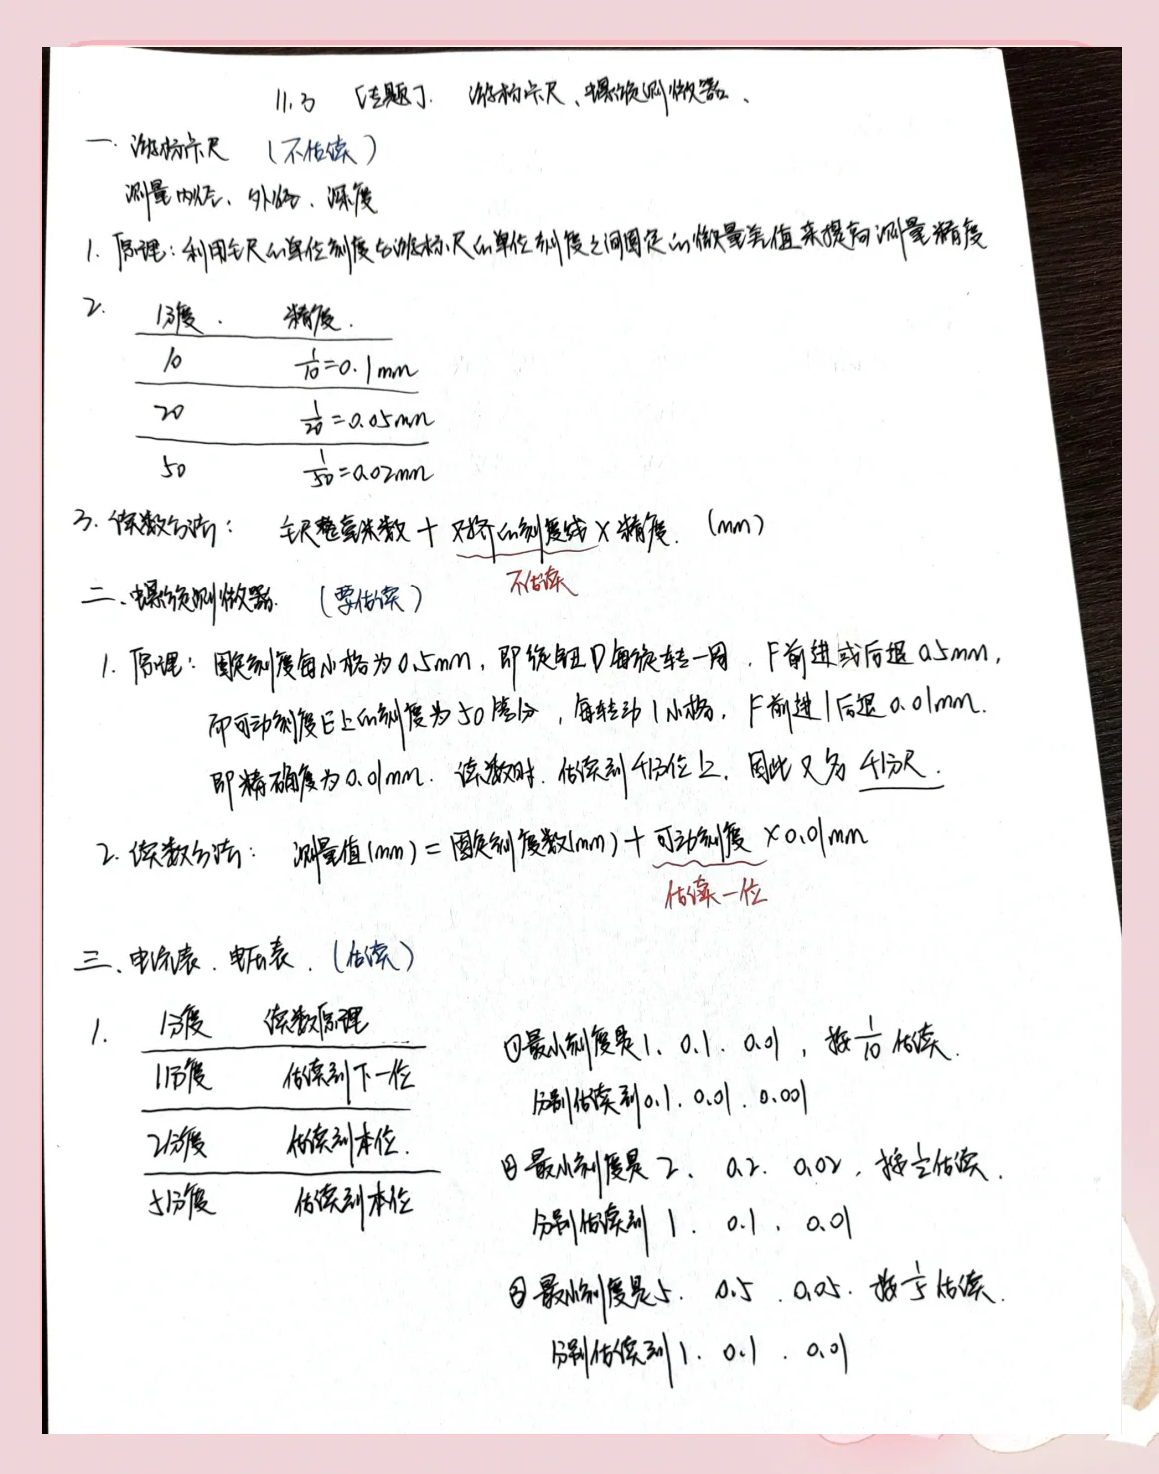 11.3 「专题」. 游标卡尺、螺旋测微器、
一. 游标卡尺 (不估读)
测量内径、外径、深度
1. 原理：利用主尺的单位刻度与游标尺的单位刻度之间固定的微量差值来提高测量精度
2.
分度. 精度.
10 1/10=0.1mm
20 1/20=0.05mm
50 1/50=0.02mm
3. 读数方法： 主尺整毫米数 + 对齐的刻度线 × 精度. (mm)
不估读
二、螺旋测微器. (要估读)
1. 原理： 固定刻度每小格为0.5mm，即旋钮D每旋转一周，F前进或后退0.5mm，
而可动刻度E上的刻度为50等分，每转动1小格，F前进/后退0.01mm.
即精确度为0.01mm. 读数时，估读到千分位上，因此又名千分尺.
2. 读数方法： 测量值(mm) = 固定刻度数(mm) + 可动刻度 ×0.01mm
估读一位
三、电流表、电压表. (估读)
1.
分度 读数原理
1分度 估读到下一位
2分度 估读到本位.
5分度 估读到本位
①最小刻度是1、0.1、0.01，按1/10估读.
分别估读到0.1、0.01、0.001
②最小刻度是2、0.2、0.02，按1/2估读.
分别估读到1、0.1、0.01
③最小刻度是5、0.5、0.05，按1/5估读.
分别估读到1、0.1、0.01